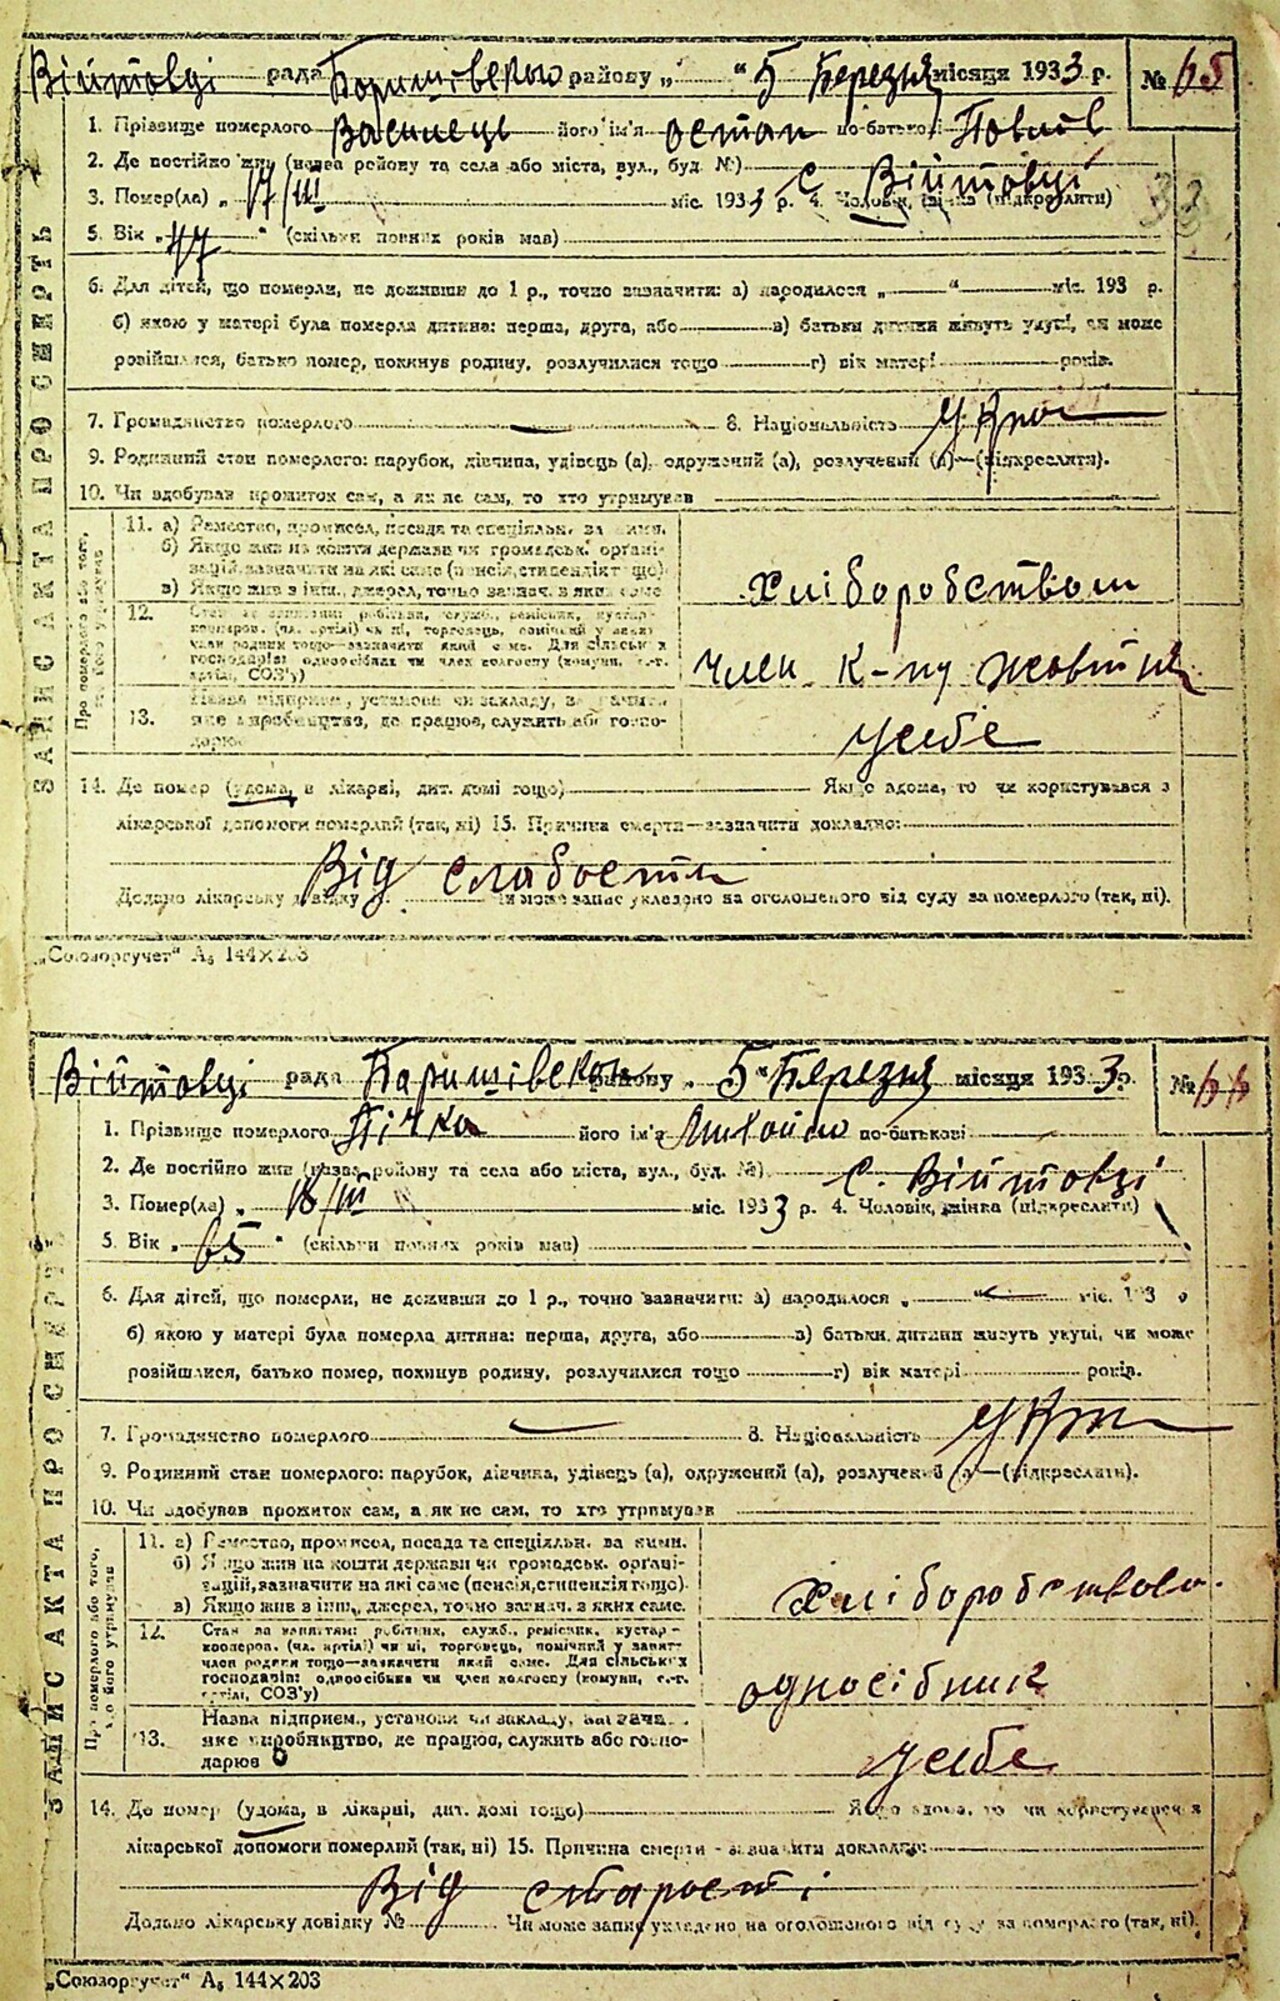 Війтовці рада Боришівського району „ “ 5 Березня місяця 1933 р. № 65
1. Прізвище померлого його ім'я Остап по-батькові Павлів
2. Де постійно жив (назва району та села або міста, вул., буд. №) с. Війтовці
3. Помер(ла) „ 17/III міс. 1933 р. 4. Чоловік, жінка (підкреслити)
33
5. Вік „ 47 “ (скільки повних років мав)
6. Для дітей, що померли, не доживши до 1 р., точно зазначити: а) народилося „ “ міс. 193 р.
б) якою у матері була померла дитина: перша, друга, або в) батьки дитини живуть укупі, чи може
розійшлися, батько помер, покинув родину, розлучилися тощо г) вік матері років.
7. Громадянство померлого — 8. Національність Укр
9. Родинний стан померлого: парубок, дівчина, удівець (а), одружений (а), розлучений (а)—(підкреслити).
10. Чи здобував прожиток сам, а як не сам, то хто утримував
ЗАПИС АКТА ПРО СМЕРТЬ
Про померлого або того, хто його утримував
11. а) Ремество, промисел, посада та спеціяльн. за ними.
б) Якщо жив на кошти держави чи громадськ. органі-
зацій, зазначити на які саме (пенсія, стипендія тощо)
в) Якщо жив з інш. джерел, точно зазнач. з яких саме
Хліборобством
12. Стан за заняттям: робітник, служб., ремісник, кустар-
кооперов. (чл. артілі) чи ні, торговець, помічний у занят.
член родини тощо—зазначити який саме. Для сільських
господарів: одноосібник чи член колгоспу (комуни, с.-г.
артілі, СОЗ'у)
член к-пу Жовтня
13. Назва підприєм., установи чи закладу, зазначити
яке виробництво, де працює, служить або госпо-
дарює
у себе
14. Де помер (удома, в лікарні, дит. домі тощо) Якщо вдома, то чи користувався з
лікарської допомоги померлий (так, ні) 15. Причина смерти—зазначити докладно:
Від слабости
Додано лікарську довідку № Чи може запис укладено на оголошеного від суду за померлого (так, ні).
„Союзоргучет“ А₅ 144×203
Війтовці рада Баришівського району „ 5 “ Березня місяця 1933 р. № 66
1. Прізвище померлого Пічка його ім'я Михайло по-батькові —
2. Де постійно жив (назва району та села або міста, вул., буд. №) с. Війтовці
3. Помер(ла) „ 18/III міс. 1933 р. 4. Чоловік, жінка (підкреслити)
5. Вік „ 65 “ (скільки повних років мав)
6. Для дітей, що померли, не доживши до 1 р., точно зазначити: а) народилося „ “ міс. 193 р.
б) якою у матері була померла дитина: перша, друга, або в) батьки дитини живуть укупі, чи може
розійшлися, батько помер, покинув родину, розлучилися тощо г) вік матері років.
7. Громадянство померлого — 8. Національність Укр
9. Родинний стан померлого: парубок, дівчина, удівець (а), одружений (а), розлучений (а)—(підкреслити).
10. Чи здобував прожиток сам, а як не сам, то хто утримував
ЗАПИС АКТА ПРО СМЕРТЬ
Про померлого або того, хто його утримував
11. а) Ремество, промисел, посада та спеціяльн. за ними.
б) Якщо жив на кошти держави чи громадськ. органі-
зацій, зазначити на які саме (пенсія, стипендія тощо).
в) Якщо жив з інш. джерел, точно зазнач. з яких саме.
Хліборобство
12. Стан за заняттям: робітник, служб., ремісник, кустар-
кооперов. (чл. артілі) чи ні, торговець, помічний у занят-
член родини тощо—зазначити який саме. Для сільських
господарів: одноосібник чи член колгоспу (комуни, с.-г.
артілі, СОЗ'у)
односібник
13. Назва підприєм., установи чи закладу, зазнача
яке виробництво, де працює, служить або госпо-
дарює
у себе
14. Де помер (удома, в лікарні, дит. домі тощо) Якщо вдома, то чи користувався з
лікарської допомоги померлий (так, ні) 15. Причина смерти - зазначити докладно:
Від старості
Додано лікарську довідку № Чи може запис укладено на оголошеного від суду за померлого (так, ні).
„Союзоргучет“ А₅ 144×203